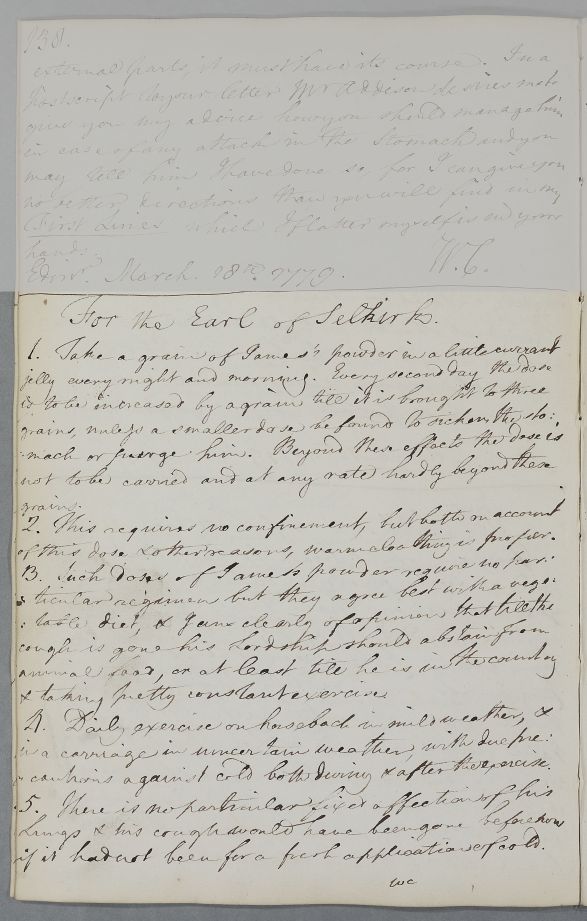 138.
external parts, it must have its course. In a
Postscript to your letter Mr Addison desires me to
give you my advice how you should manage him
in case of any attack in the Stomach and you
may tell him I have done so, for I can give you
no better directions than you will find in my
First Lines which I flatter myself is in your
hands.
Edinr. March. 18th. 1779. W. C.
For the Earl of Selkirk.
1. Take a grain of James's powder in a little currant
jelly every night and morning. Every second day the dose
is to be increased by a grain till it is brought to three
grains, unless a smaller dose be found to sicken the sto:
:mach or purge him. Beyond these effects the dose is
not to be carried and at any rate hardly beyond three
grains.
2. This requires no confinement, but both on account
of this dose & other reasons, warm cloathing is proper.
3. Such doses of James's powder require no par:
:ticular regimen but they agree best with a vege:
:table diet, & I am clearly of opinion that till the
cough is gone his Lordship should abstain from
animal food, or at least till he is in the country
& taking pretty constant exercise.
4. Daily exercise on horseback in mild weather, &
in a carriage in uncertain weather, with due pre:
:cautions against cold both during & after the exercise.
5. There is no particular fixed affection of his
Lungs & his cough would have been gone before now
if it had not been for a fresh application of cold.
WC